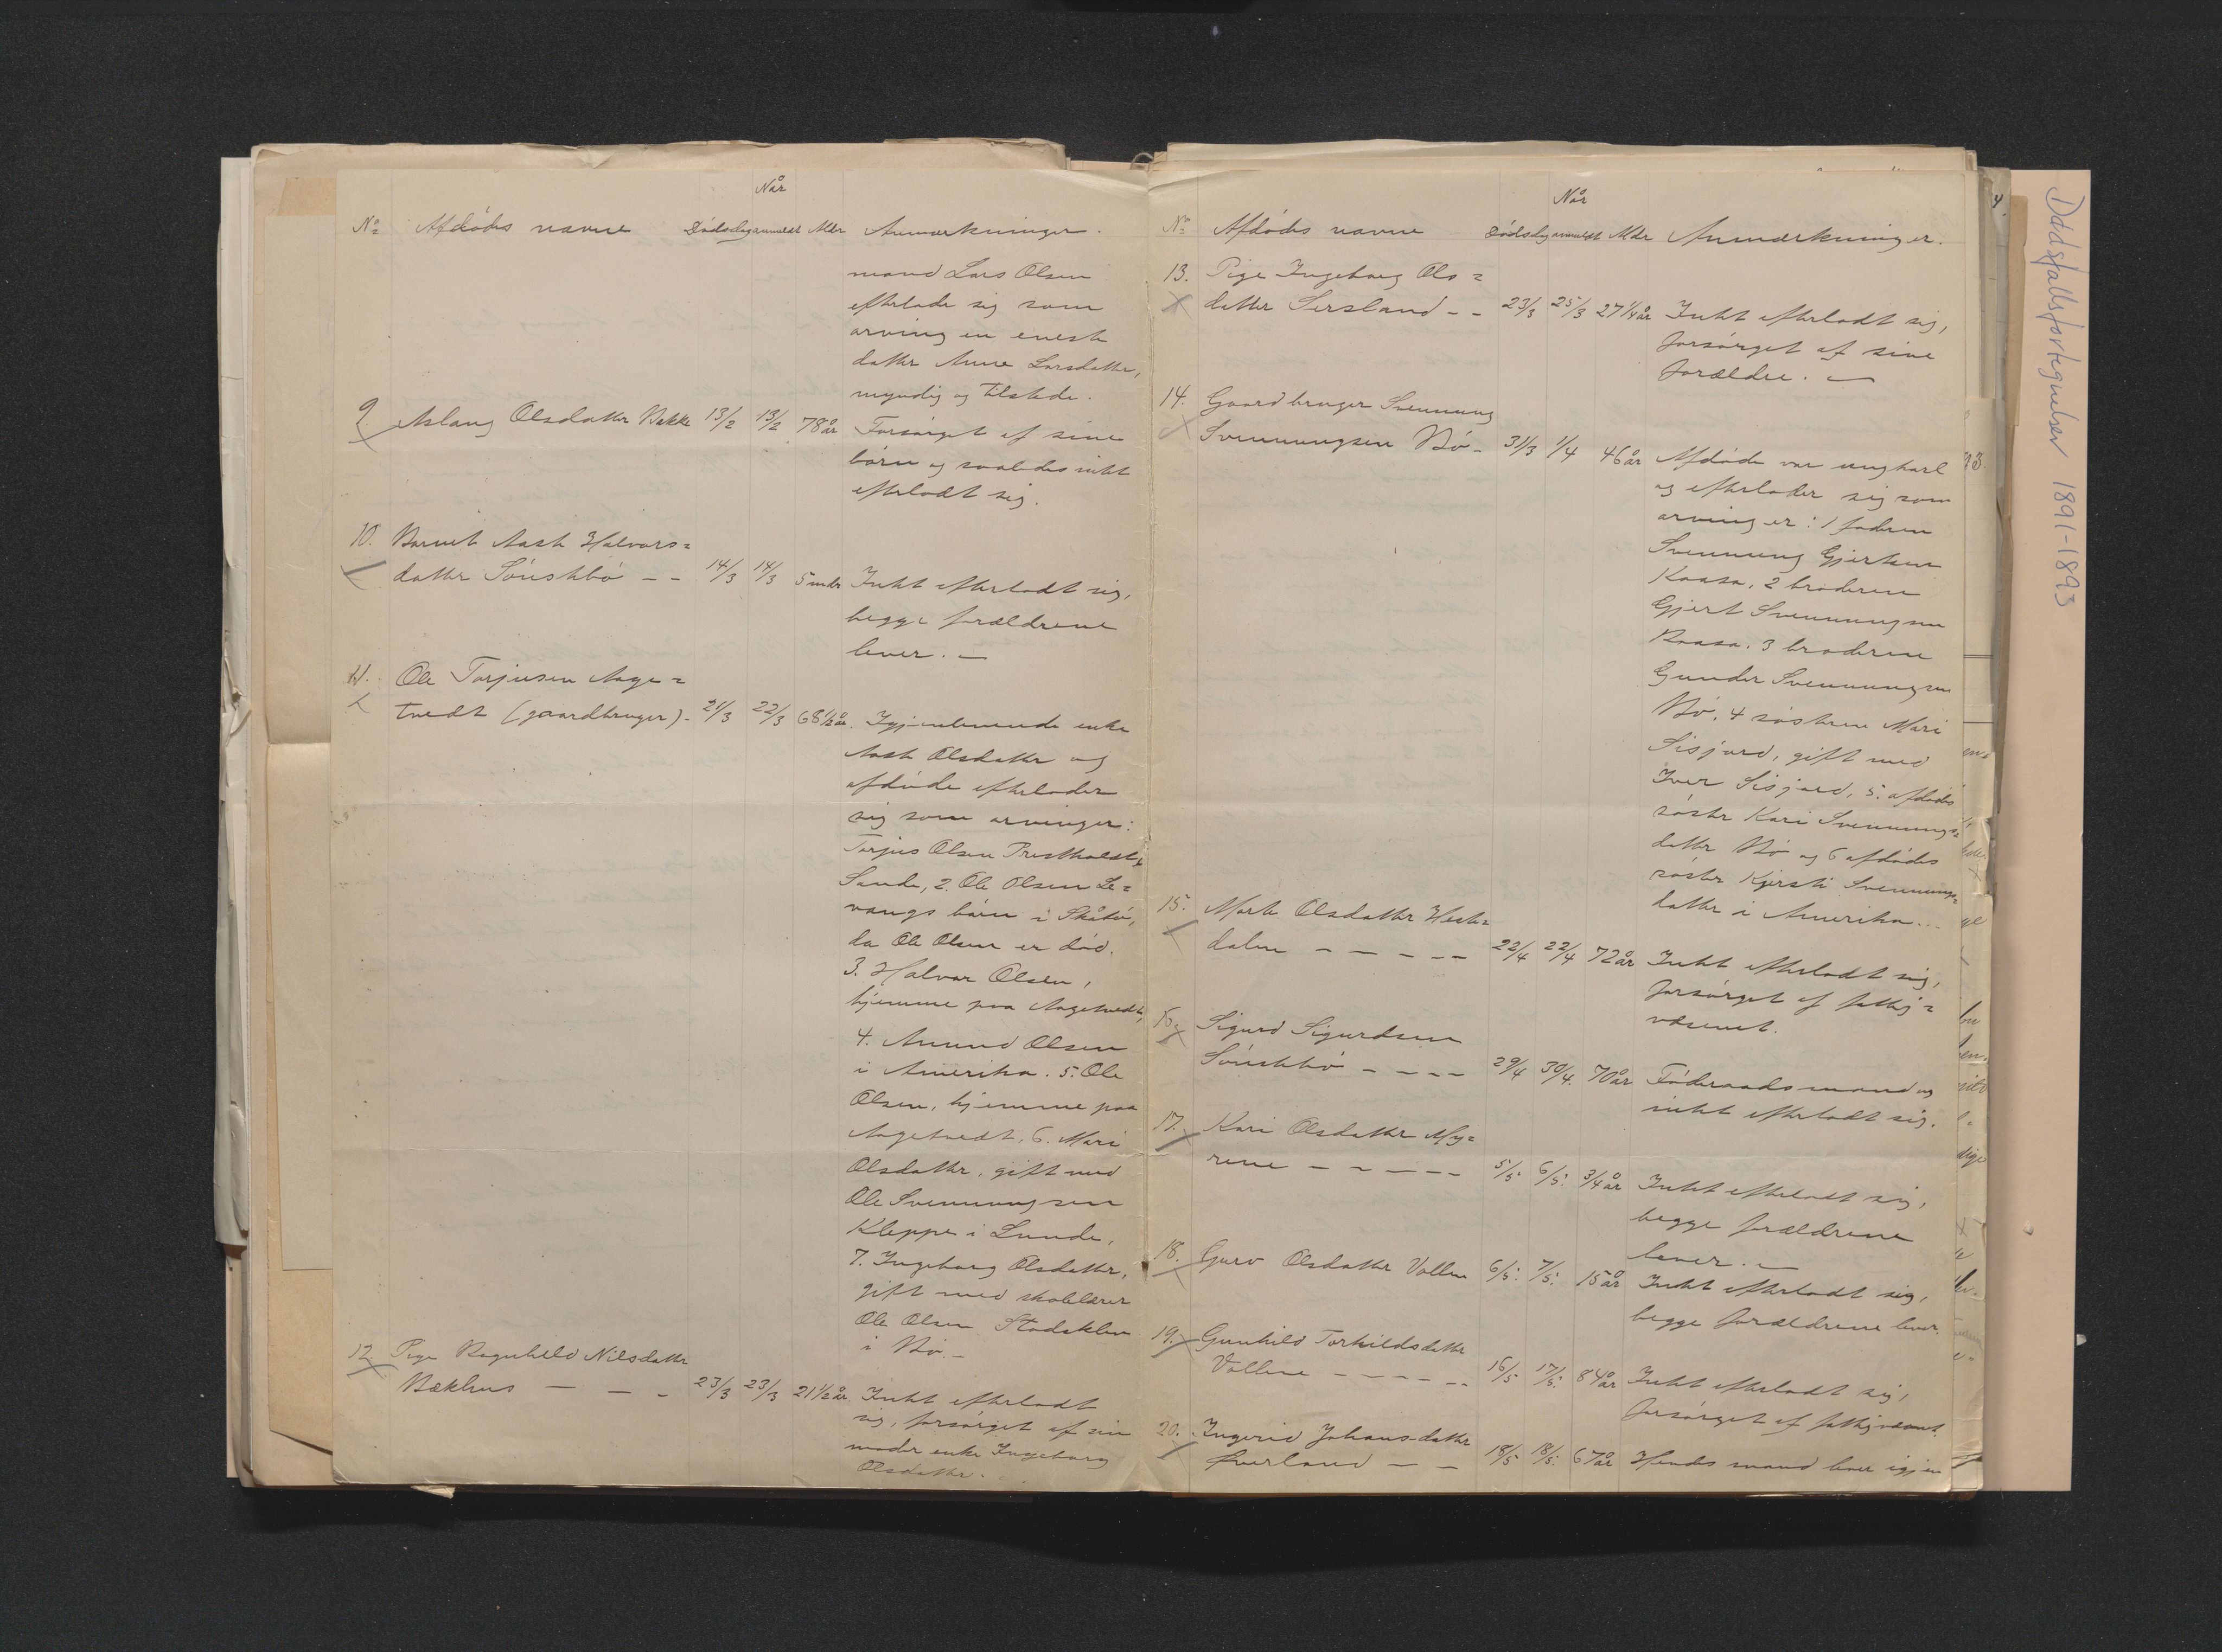 Når
No Afdødes navne Dødsdag anmeldt Alder Anmærkninger.
mand Lars Olsen
efterlade sig som
arving en eneste
datter Anne Larsdatter,
myndig og tilstede.
9. Aslaug Olsdatter Bakke 13/2 13/2 78 år Forsørget af sine
børn og saaledes intet
efterladt sig.
10. Barnet Aaste Halvors=
datter Sönstebö - - 14/3 14/3 5 mdr Intet efterladt sig,
begge forældrene
lever. —
11. Ole Torjusen Aage=
tvedt (gaardbruger) - 21/3 22/3 68 1/2 år. Igjenlevende enke
Aaste Olsdatter og
afdøde efterlader
sig som arvinger:
Torjus Olsen Prestholt,
Sande, 2. Ole Olsen Le=
vangs børn i Skåtö,
da Ole Olsen er død.
3. Halvor Olsen,
hjemme paa Aagetvedt,
4. Amund Olsen
i Amerika. 5. Ole
Olsen, hjemme paa
Aagetvedt, 6. Mari
Olsdatter, gift med
Ole Svennungsen
Kleppe i Lunde,
7. Ingeborg Olsdatter,
gift med skolelærer
Ole Olsen Stadskleiv
i Bö. -
12. Pige Ragnhild Nilsdatter
Bækhus — — - 23/3 23/3 21 1/2 år Intet efterladt
sig, forsørget af sin
moder enke Ingeborg
Olsdatter.
Når
No Afdødes navne Dødsdag anmeldt Alder Anmærkninger.
13. Pige Ingeborg Ols=
datter Sersland - - 23/3 25/3 27 1/4 år Intet efterladt sig,
forsørget af sine
forældre. —
14. Gaardbruger Svennung
Svennungsen Bö - 31/3 1/4 46 år Afdøde var ungkarl
og efterlader sig som
arvinger: 1 faderen
Svennung Gjertsen
Kaasa, 2 broderen
Gjert Svennungsen
Kaasa. 3 broderen
Gunder Svennungsen
Bö, 4 søsteren Mari
Sisjord, gift med
Iver Sisjord, 5. afdødes
søster Kari Svennungs=
datter Bö og 6 afdødes
søster Kjersti Svennungs=
datter i Amerika...
15. Marte Olsdatter Heste=
dalen - - - - - 22/4 22/4 72 år Intet efterladt sig,
forsørget af fattig=
væsenet.
16. Sigurd Sigurdsen
Sönstebö - - - - 29/4 30/4. 70 år Føderaadsmand og
intet efterladt sig.
17. Kari Olsdatter My=
rene - - - - - 5/5 6/5. 3/4 år Intet efterladt sig,
begge forældrene
lever. —
18. Guro Olsdatter Vollen 6/5. 7/5. 15 år Intet efterladt sig,
begge forældrene lever.
19. Gunhild Torkildsdatter
Vollene - - - - - 16/5 17/5. 84 år Intet efterladt sig,
forsørget af fattigvæsenet.
20. Ingerid Johansdatter
Øverland - - 18/5 18/5. 67 år Hendes mand lever igjen
Dødsfallsfortegnelser 1891-1893